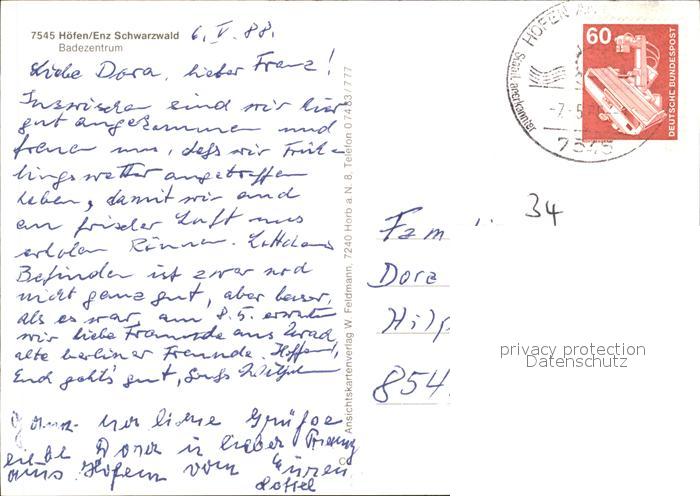 7545 Höfen/Enz Schwarzwald
Badezentrum
6. V. 88.
Liebe Dora, lieber Franz!
Inzwischen sind wir hier
gut angekommen und
freuen uns, daß wir Früh-
lingswetter angetroffen
haben, damit wir uns
an frischer Luft
erholen können.
Befinden ist zwar noch
nicht ganz gut, aber besser,
als es war, am 8.5. erwarten
wir liebe Freunde aus
alte berliner Freunde. Hoffentl.
Euch geht's gut,
Ganz herzliche Grüße
liebe Dora u. lieber Franz
aus Höfen von Euren
Ansichtskartenverlag W. Feldmann, 7240 Horb a. N. 8, Telefon 07483/777
HÖFEN AN
Staatl. anerkannter
-7.-5.
7545
60
DEUTSCHE BUNDESPOST
34
Fam
Dora
Hilp
854
privacy protection
Datenschutz